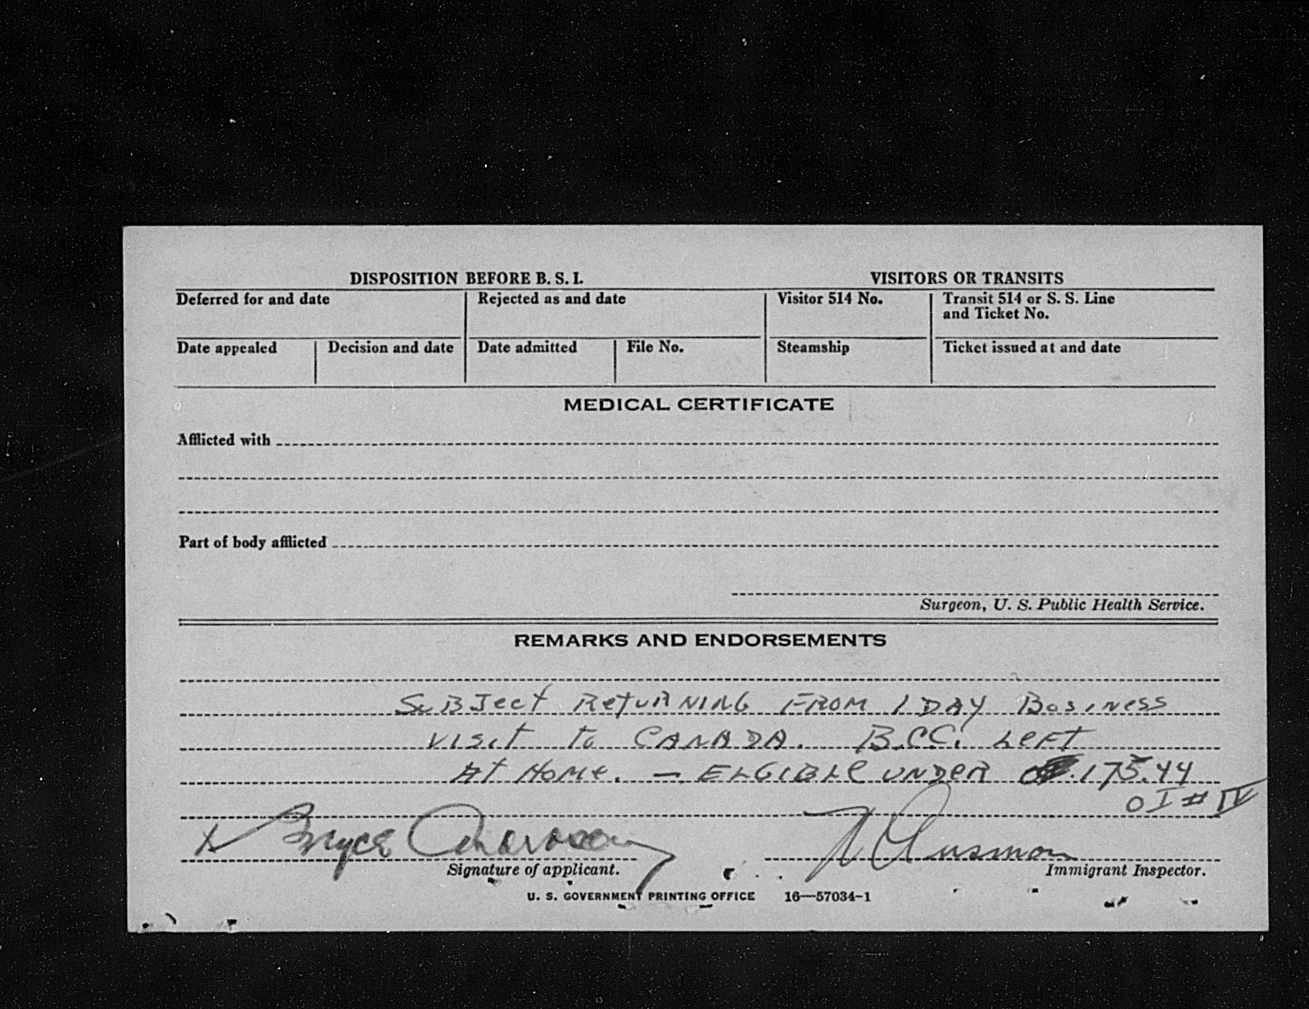 DISPOSITION BEFORE B. S. I.
VISITORS OR TRANSITS
Deferred for and date
Rejected as and date
Visitor 514 No.
Transit 514 or S. S. Line
and Ticket No.
Date appealed
Decision and date
Date admitted
File No.
Steamship
Ticket issued at and date
MEDICAL CERTIFICATE
Afflicted with
Part of body afflicted
Surgeon, U. S. Public Health Service.
REMARKS AND ENDORSEMENTS
SUBJect RetuRNING FROM 1 DAY Business
visit to CANADA. B.CC. LeFT
At Home. — ELGIBLe UNDeR 175.44
O I # IV
X Bryce
Signature of applicant.
Immigrant Inspector.
U. S. GOVERNMENT PRINTING OFFICE 16—57034-1